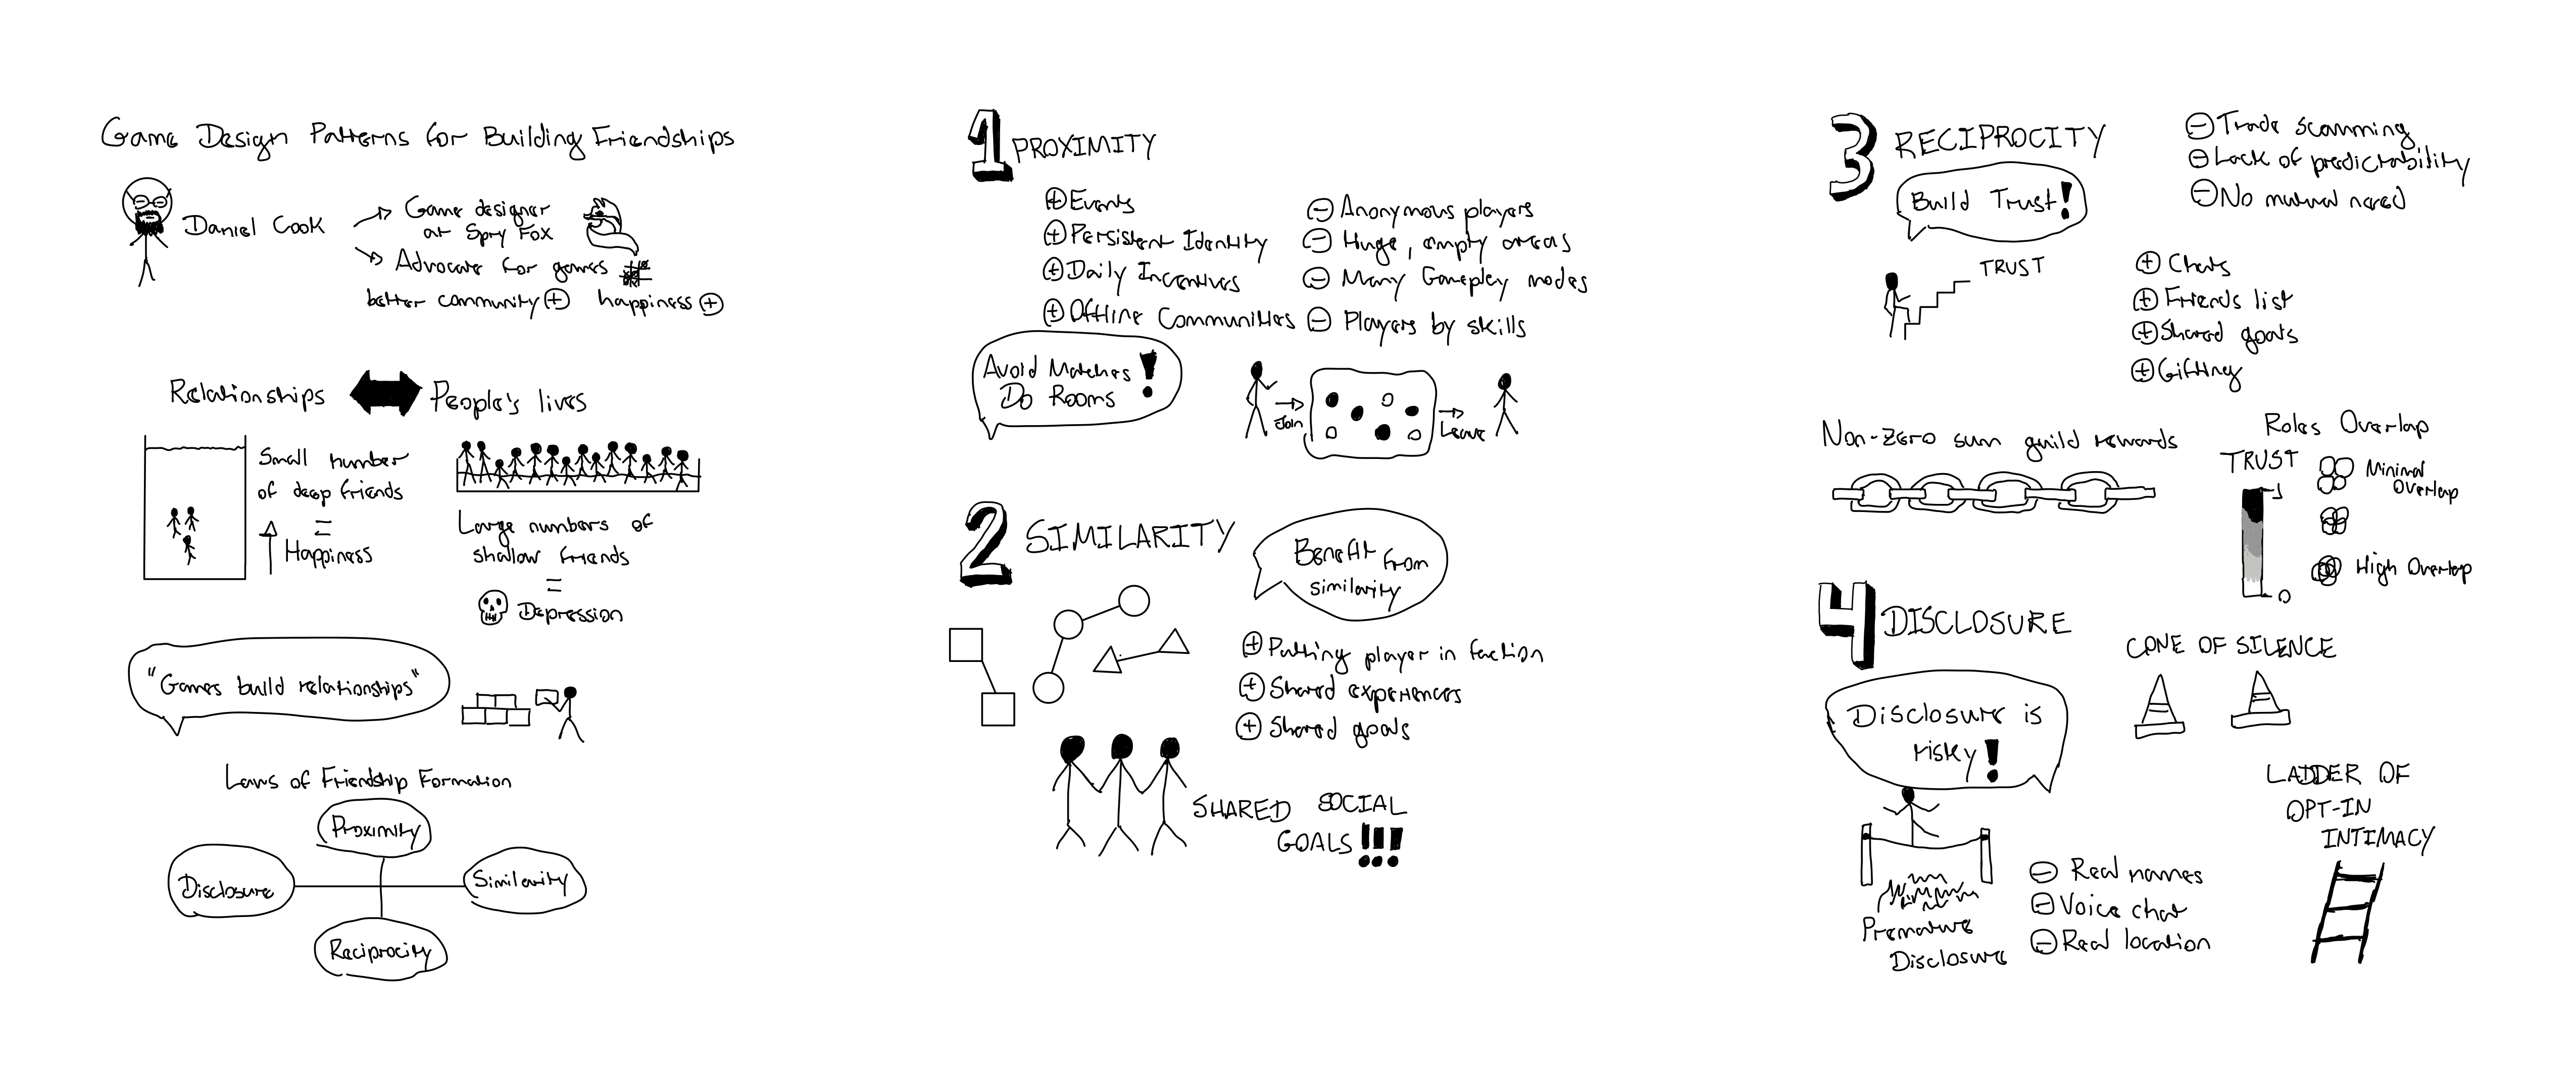 Game Design Patterns for Building Friendships
Daniel Cook
Game designer
at Spry Fox
Advocate for games
better community + happiness +
Relationships People's lives
Small number
of deep friends
=
Happiness
Large numbers of
shallow friends
=
Depression
"Games build relationships"
Laws of Friendship Formation
Proximity
Disclosure
Similarity
Reciprocity
1 PROXIMITY
+ Events
+ Persistent Identity
+ Daily Incentives
+ Offline Communities
- Anonymous players
- Huge, empty areas
- Many Gameplay modes
- Players by skills
Avoid Matches !
Do Rooms
Join
Leave
2 SIMILARITY
Benefit from
similarity
+ Putting player in faction
+ Shared experiences
+ Shared goals
SHARED SOCIAL
GOALS !!!
3 RECIPROCITY
Build Trust!
- Trade scamming
- Lack of predictability
- No mutual need
TRUST
+ Chats
+ Friends list
+ Shared goals
+ Gifting
Non-zero sum guild rewards
Roles Overlap
TRUST
1
0
Minimal
Overlap
High Overlap
4 DISCLOSURE
Disclosure is
risky!
CONE OF SILENCE
Premature
Disclosure
- Real names
- Voice chat
- Real location
LADDER OF
OPT-IN
INTIMACY